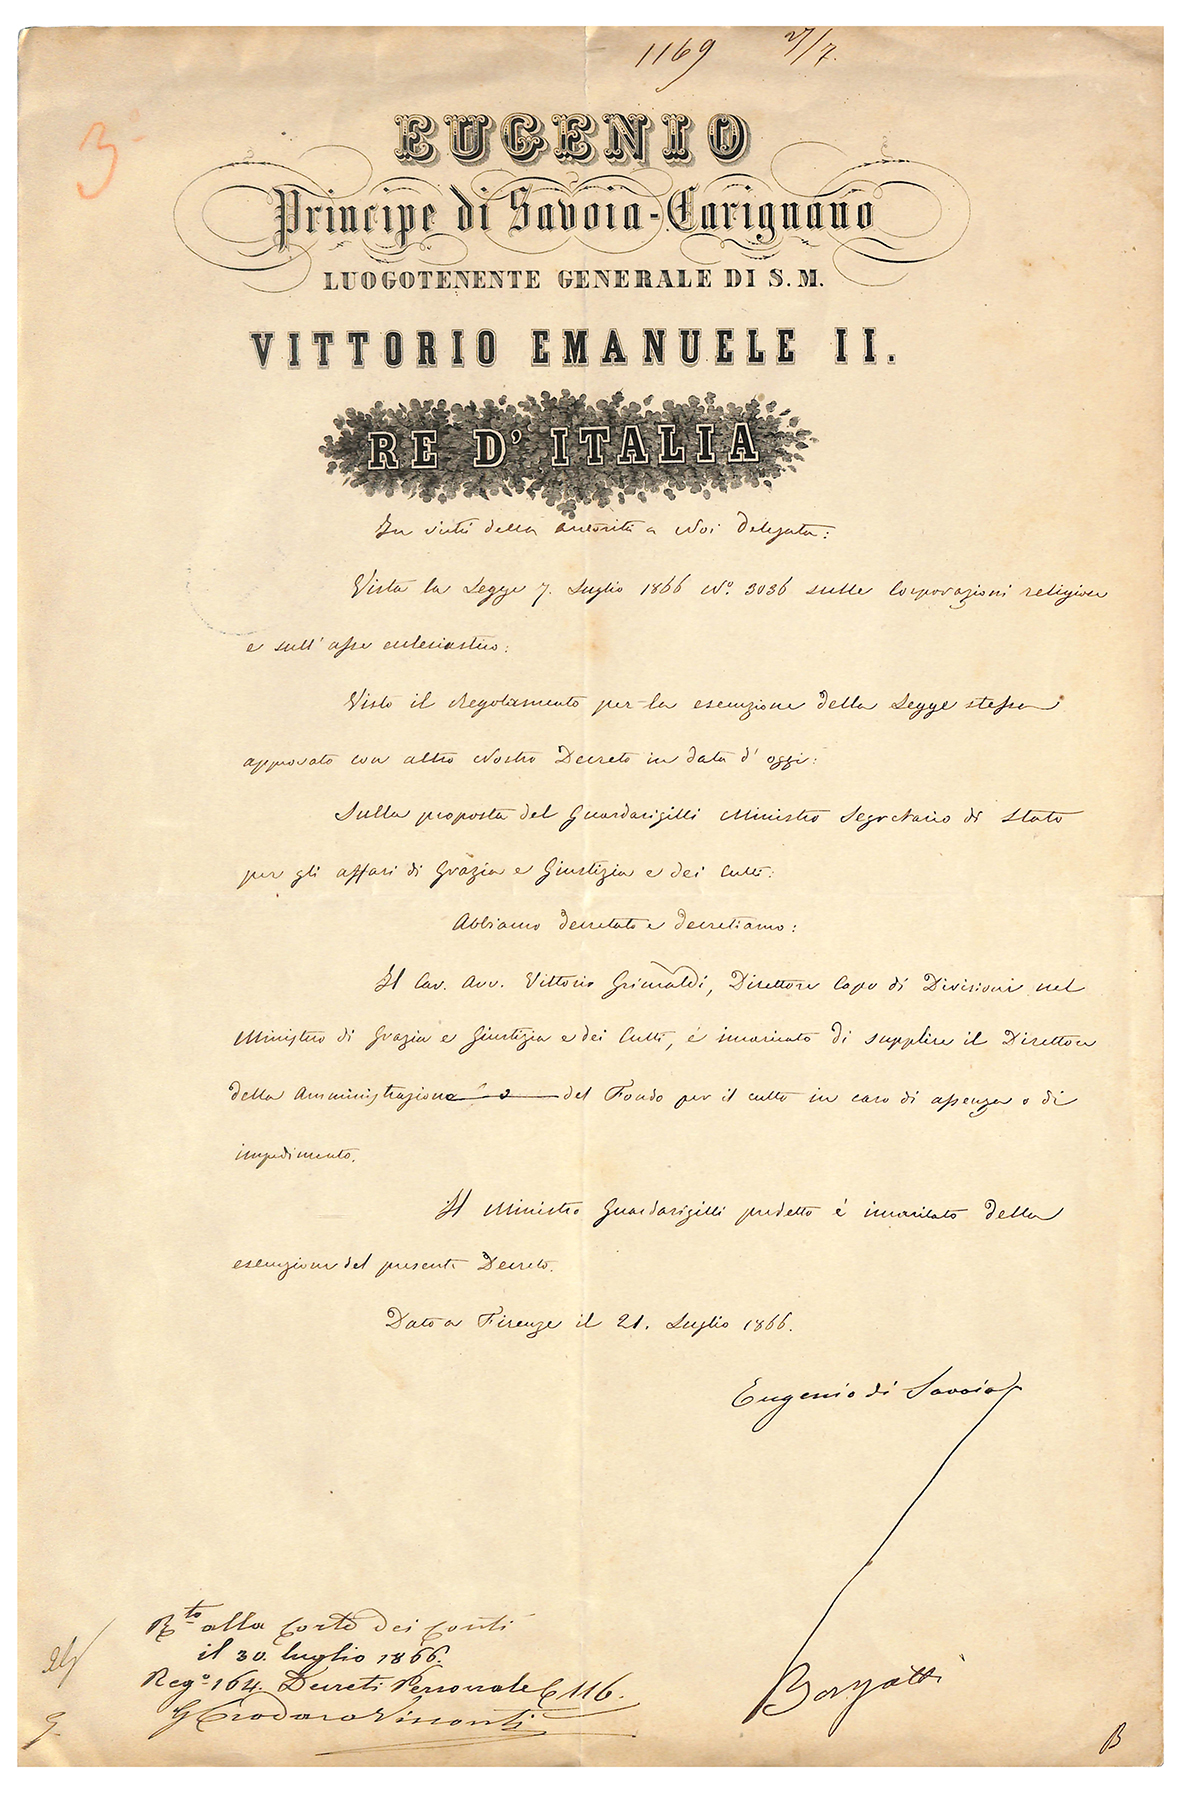 1169 27/7.
3°
EUGENIO
Principe di Savoia-Carignano
LUOGOTENENTE GENERALE DI S. M.
VITTORIO EMANUELE II.
RE D'ITALIA
In virtù della autorità a Noi delegata:
Vista la Legge 7. Luglio 1866 No. 3036 sulle Corporazioni religiose
e sull'asse ecclesiastico:
Visto il Regolamento per la esecuzione della Legge stessa
approvato con altro Nostro Decreto in data d'oggi:
Sulla proposta del Guardasigilli Ministro Segretario di Stato
per gli affari di Grazia e Giustizia e dei Culti:
Abbiamo decretato e decretiamo:
Il Cav. Avv. Vittorio Grimaldi, Direttore Capo di Divisione nel
Ministero di Grazia e Giustizia e dei Culti, è incaricato di supplire il Direttore
della Amministrazione del Fondo per il culto in caso di assenza o di
impedimento.
Il Ministro Guardasigilli predetto è incaricato della
esecuzione del presente Decreto.
Dato a Firenze il 21. Luglio 1866.
Eugenio di Savoia
Rto alla Corte dei Conti
il 30 luglio 1866.
Rego 164. Decreti Personale C 116.
Visconti
Borgatti
B